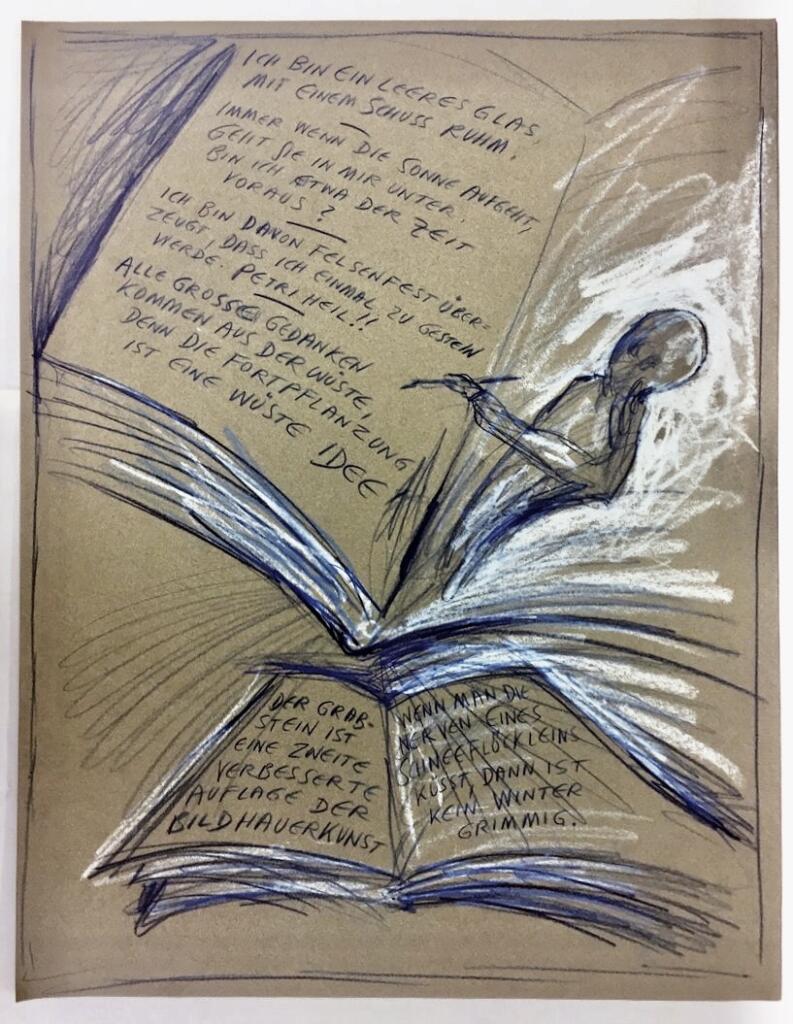 ICH BIN EIN LEERES GLAS,
MIT EINEM SCHUSS RUHM.
IMMER WENN DIE SONNE AUFGEHT,
GEHT SIE IN MIR UNTER.
BIN ICH ETWA DER ZEIT
VORAUS?
ICH BIN DAVON FELSENFEST ÜBER=
ZEUGT, DASS ICH EINMAL ZU GESTEIN
WERDE. PETRI HEIL!!
ALLE GROSSE GEDANKEN
KOMMEN AUS DER WÜSTE,
DENN DIE FORTPFLANZUNG
IST EINE WÜSTE IDEE
DER GRAB-
STEIN IST
EINE ZWEITE
VERBESSERTE
AUFLAGE DER
BILDHAUERKUNST
WENN MAN DIE
NERVEN EINES
SCHNEEFLÖCKLEINS
KÜSST, DANN IST
KEIN WINTER
GRIMMIG.